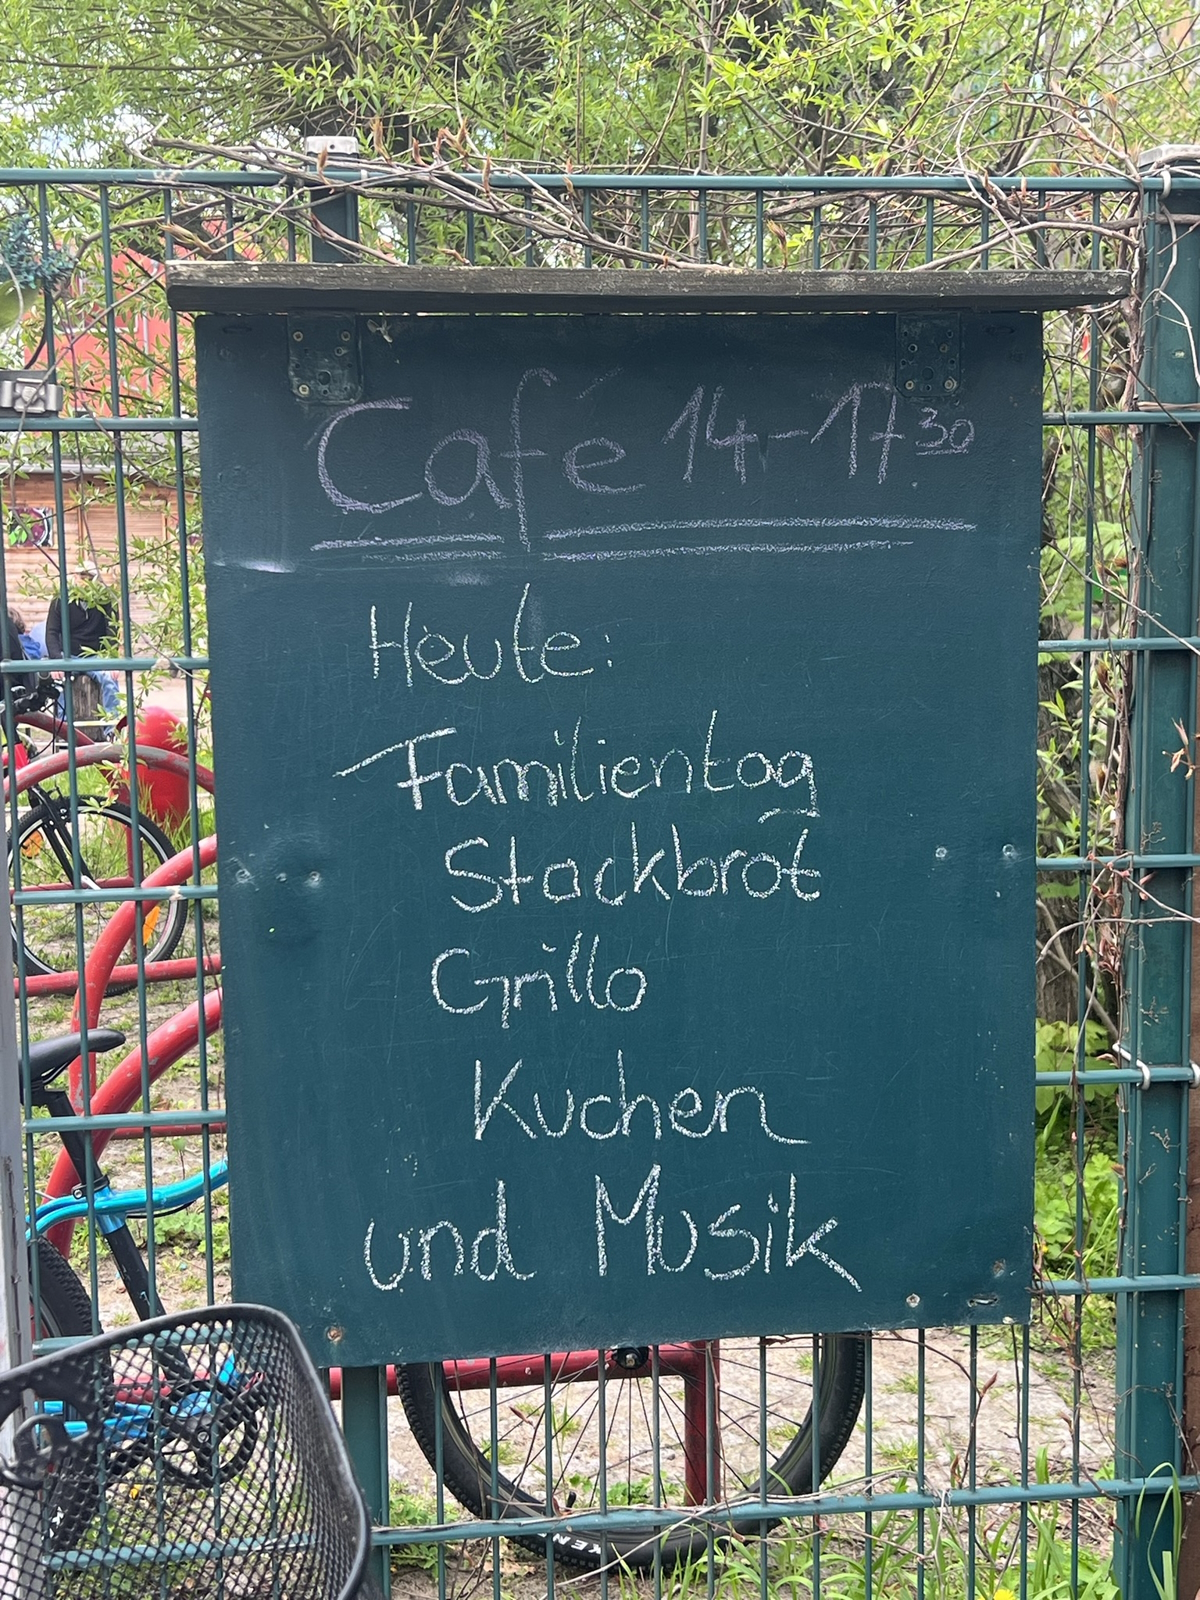 Café 14-17 30
Heute:
Familientag
Stackbrot
Grillo
Kuchen
und Musik